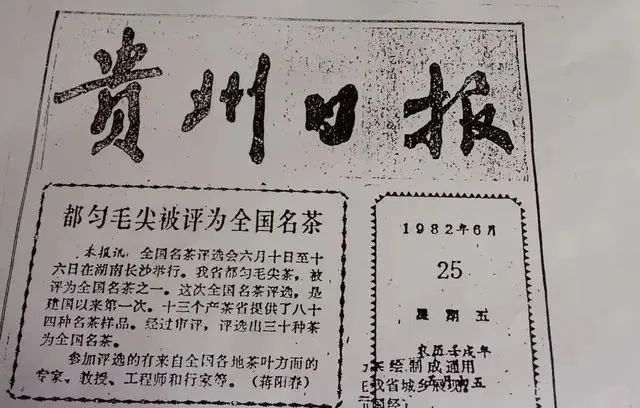 贵州日报
都匀毛尖被评为全国名茶
本报讯：全国名茶评选会六月十日至十
六日在湖南长沙举行。我省都匀毛尖茶，被
评为全国名茶之一。这次全国名茶评选，是
建国以来第一次。十三个产茶省提供了八十
四种名茶样品。经过审评，评选出三十种茶
为全国名茶。
参加评选的有来自全国各地茶叶方面的
专家、教授、工程师和行家等。（蒋阳春）
1982年6月
25
星期五
农历壬戌年
绘制成通用
我省城乡